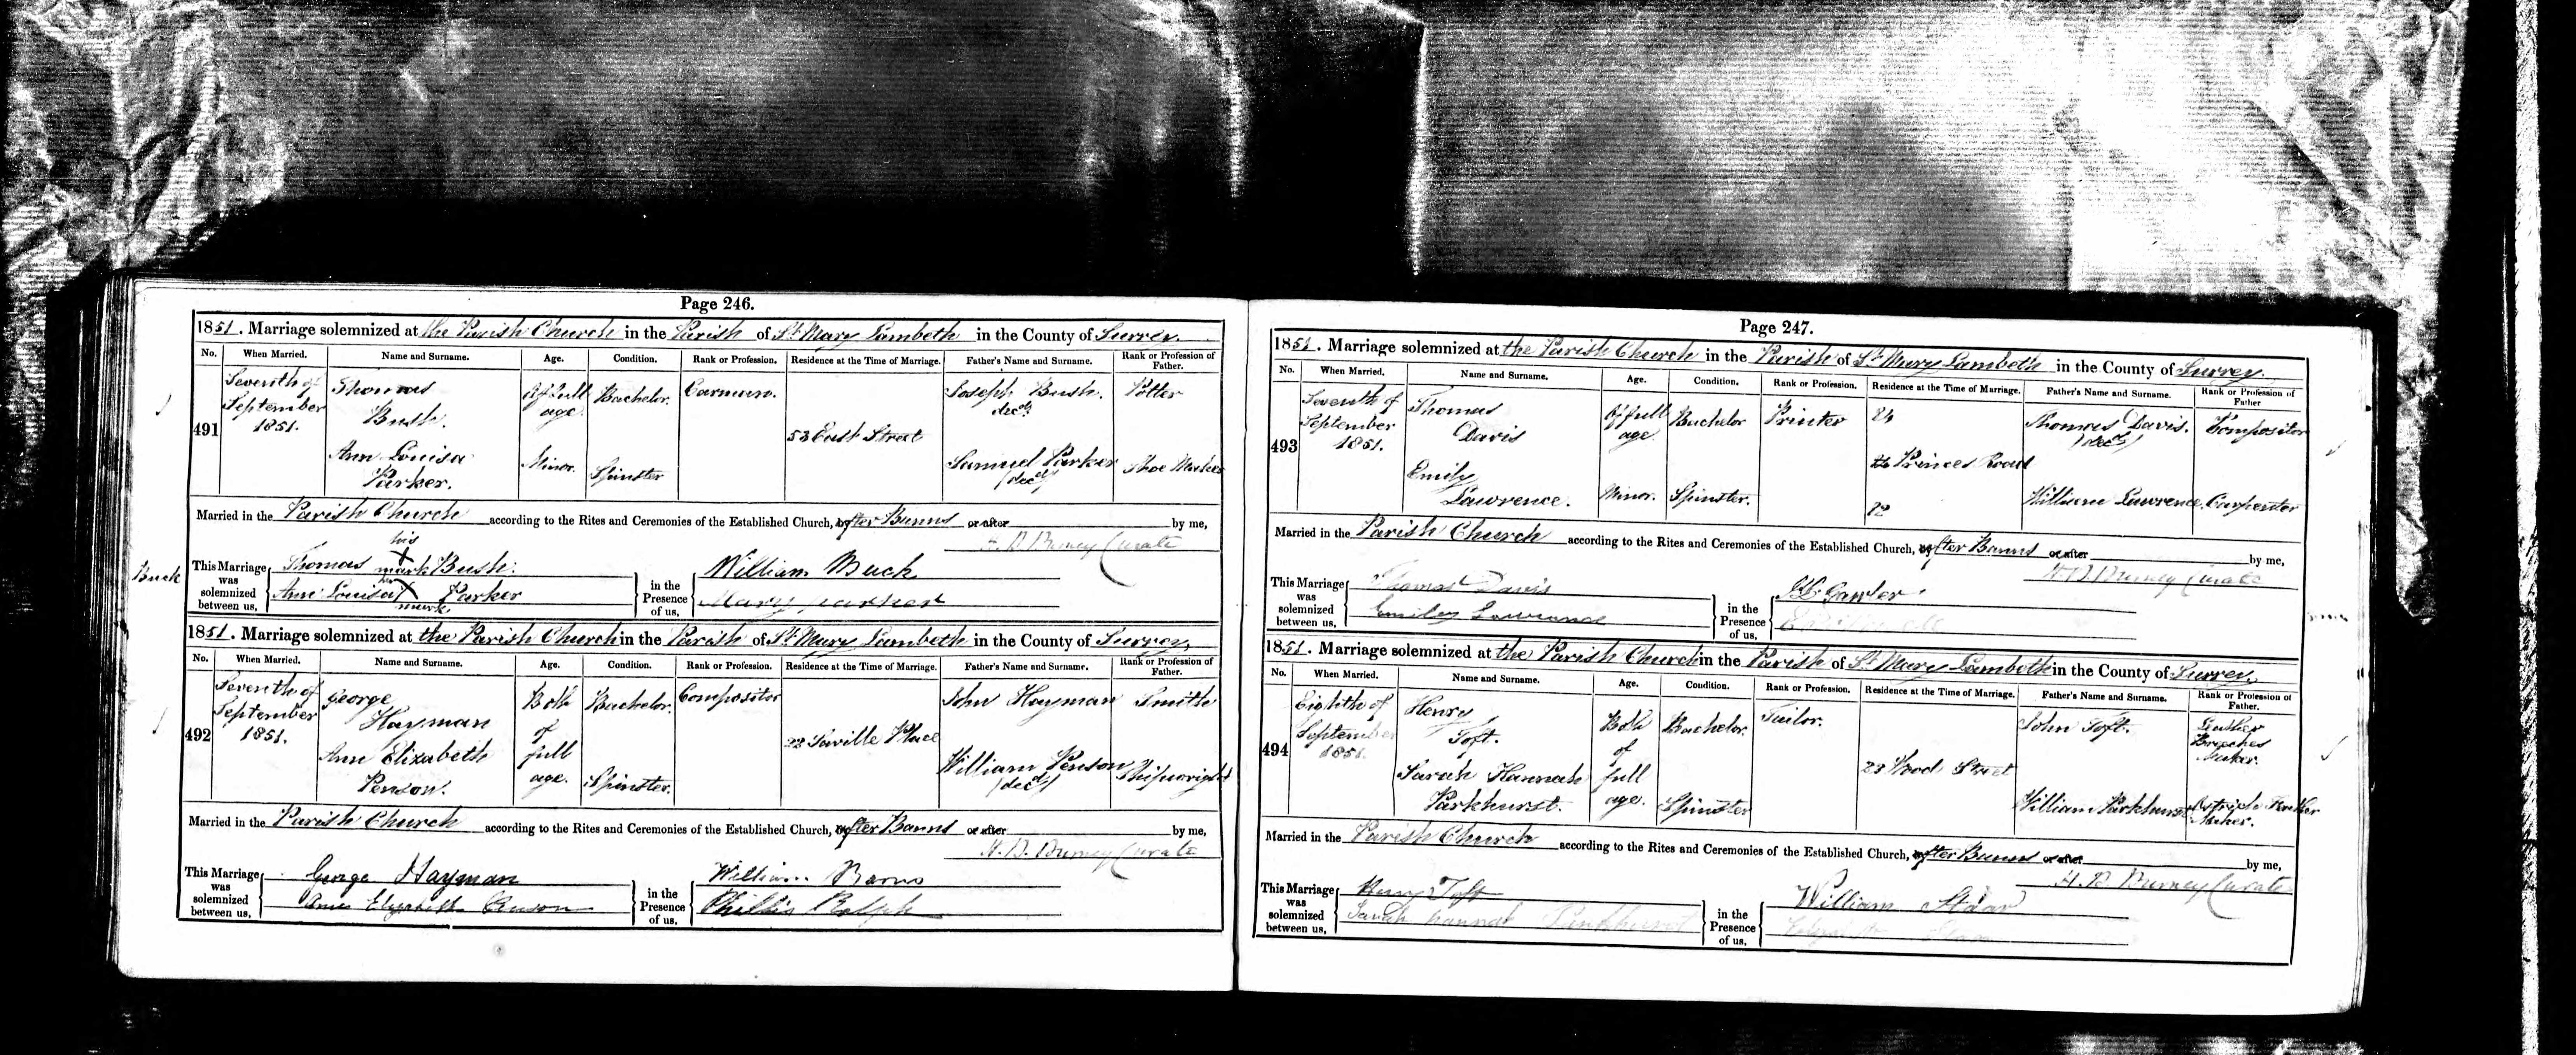 Page 246.
1851. Marriage solemnized at the Parish Church in the Parish of St. Mary Lambeth in the County of Surrey.
No. When Married. Name and Surname. Age. Condition. Rank or Profession. Residence at the Time of Marriage. Father's Name and Surname. Rank or Profession of Father.
491 Seventh of September 1851. Thomas Bush. Of full age. Bachelor. Carman. 53 East Street Joseph Bush. decd. Potter
Ann Louisa Parker. Minor. Spinster Samuel Parker (decd) Shoe Maker
Married in the Parish Church according to the Rites and Ceremonies of the Established Church, after Banns or after by me,
H. B. Burney Curate
This Marriage was solemnized between us, Thomas his X mark Bush. in the Presence of us, William Buck
Buck
Ann Louisa her X mark Parker Mary parker
1851. Marriage solemnized at the Parish Church in the Parish of St. Mary Lambeth in the County of Surrey,
No. When Married. Name and Surname. Age. Condition. Rank or Profession. Residence at the Time of Marriage. Father's Name and Surname. Rank or Profession of Father.
492 Seventh of September 1851. George Hayman Both of full age. Bachelor. Compositor 22 Saville Place John Hayman Smith
Ann Elizabeth Penson. Spinster. William Penson (decd) Shipwright
Married in the Parish Church according to the Rites and Ceremonies of the Established Church, after Banns or after by me,
H. B. Burney Curate
This Marriage was solemnized between us, George Hayman in the Presence of us, William Barns
Elizabeth Phillis Rolph
Page 247.
1851. Marriage solemnized at the Parish Church in the Parish of St. Mary Lambeth in the County of Surrey.
No. When Married. Name and Surname. Age. Condition. Rank or Profession. Residence at the Time of Marriage. Father's Name and Surname. Rank or Profession of Father
493 Seventh of September 1851. Thomas Davis Of full age. Bachelor Printer Princes Road Thomas Davis. (decd) Compositor
Emily Lawrence. Minor. Spinster. William Lawrence. Carpenter
Married in the Parish Church according to the Rites and Ceremonies of the Established Church, after Banns or after by me,
H. B. Burney Curate
This Marriage was solemnized between us, Thomas Davis in the Presence of us,
Emiley
1851. Marriage solemnized at the Parish Church in the Parish of St. Mary Lambeth in the County of Surrey.
No. When Married. Name and Surname. Age. Condition. Rank or Profession. Residence at the Time of Marriage. Father's Name and Surname. Rank or Profession of Father.
494 Eighth of September 1851. Henry Toft. Both of full age. Bachelor. Tailor. Wood Street John Toft. Leather Breeches Maker.
Sarah Hannah Parkhurst. Spinster William Parkhurst Ostrich Feather Maker.
Married in the Parish Church according to the Rites and Ceremonies of the Established Church, after Banns or after by me,
H. B. Burney Curate
This Marriage was solemnized between us, Henry Toft in the Presence of us, William
Sarah hannah